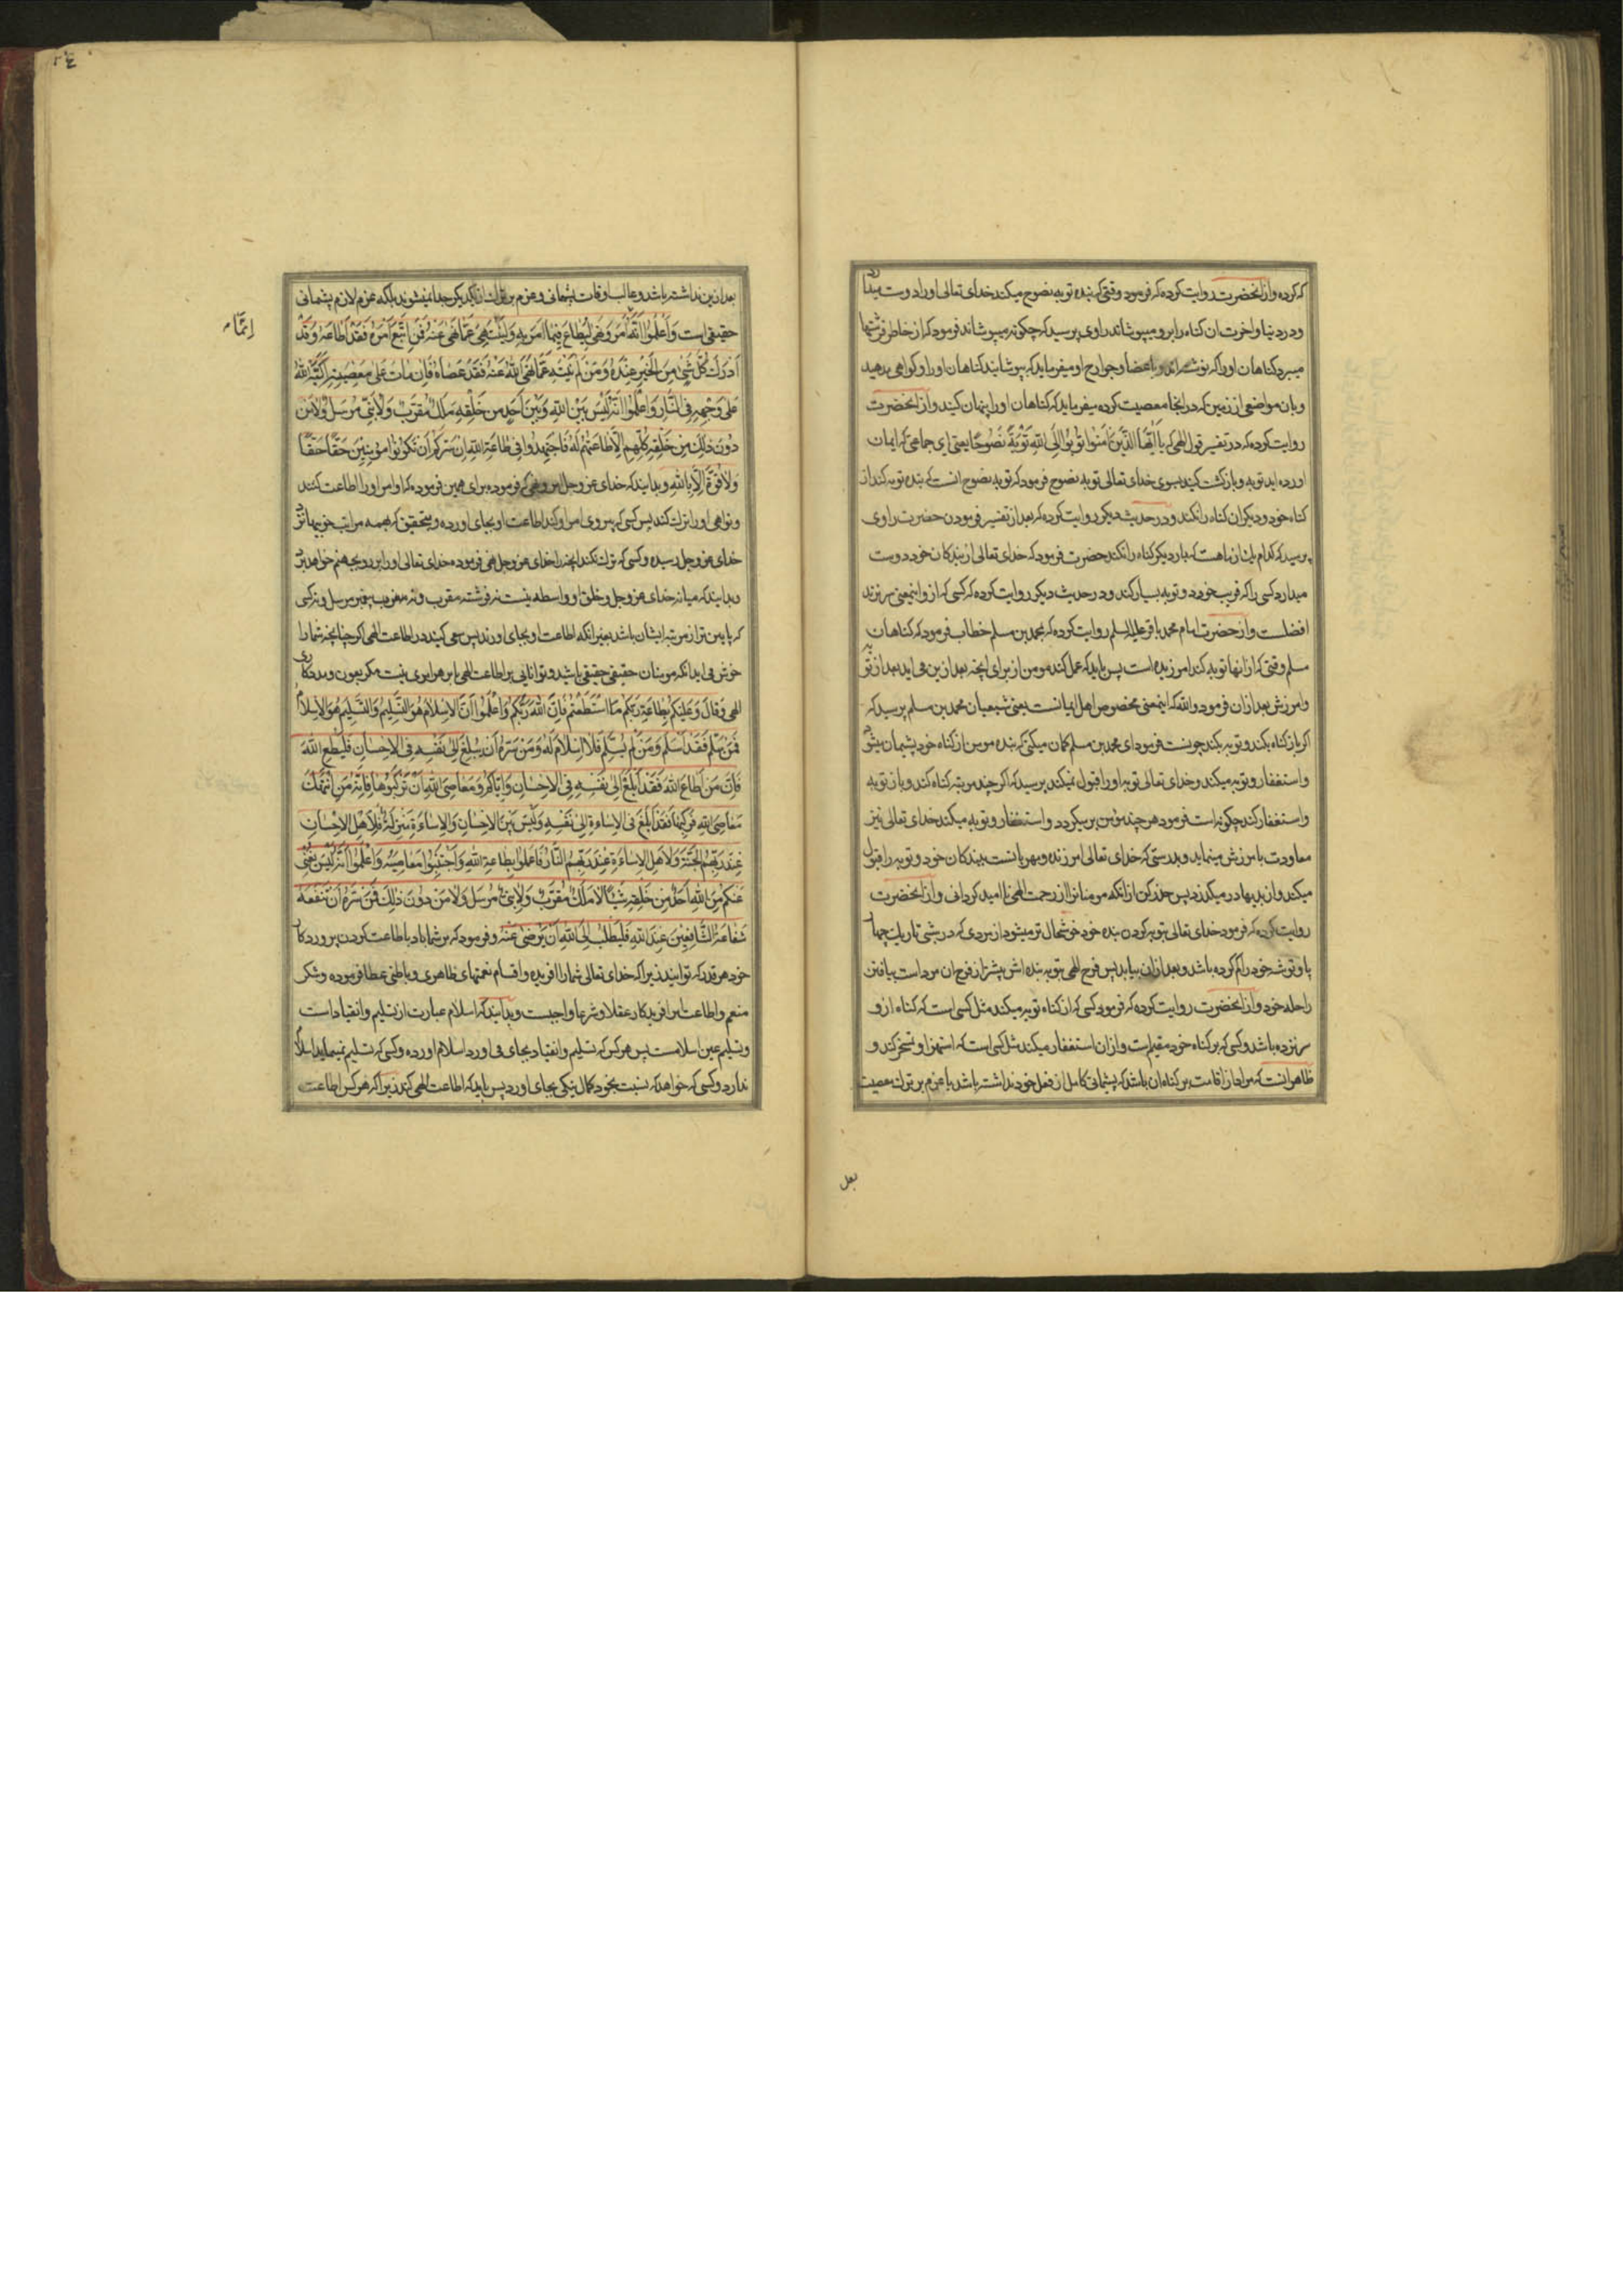 که کرده و از آنحضرت روایت کرده که فرمود وقتی که بنده توبه نصوح میکند خدای تعالی او را دوست میدارد
و در دنیا و اخرت ان کناه را برو میپوشاند راوی پرسید که چکونه میپوشاند فرمود که از خاطر فرشتها
میبرد کناهان او را که نوشته‌اند و باعضا و جوارح او میفرماید که بپوشانید کناهان او را و کواهی مدهید
و بان مواضعی از زمین که در انجا معصیت کرده میفرماید که کناهان او را پنهان کنید و از انحضرت
روایت کرده که در تفسیر قول الهی که یَا اَیُّهَا الَّذِینَ آمَنُوا تُوبُوا اِلَی اللهِ تَوْبَةً نَصُوحًا یعنی ای جماعتی که ایمان
اورده اید توبه و بازکشت کنید بسوی خدای تعالی توبه نصوح فرمود که توبه نصوح انست که بنده توبه کند از
کناه خود و دیکر ان کناه را نکند و در حدیث دیکر روایت کرده که بعد از تفسیر فرمودن حضرت راوی
پرسید که کدام یک از ماهست که بار دیکر کناه را نکند حضرت فرمود که خدای تعالی از بندکان خود دوست
میدارد کسی را که فریب خورد و توبه بسیار کند و در حدیث دیکر روایت کرده که کسی که ازو اینمعنی سر نزند
افضلست و از حضرت امام محمد باقر علیه السلم روایت کرده که بمحمد بن مسلم خطاب فرمود که کناهان
مسلم وقتی که از انها توبه کند امرزیده است پس باید که عمل کند مومن از برای انچه بعد ازین می اید بعد از توبه
و امرزش بعد ازان فرمود والله که اینمعنی مخصوص اهل ایمانست یعنی شیعیان محمد بن مسلم پرسید که
اکر باز کناه بکند و توبه بکند چونست فرمود ای محمد بن مسلم کمان میکنی که بنده مومن از کناه خود پشیمان شود
و استغفار و توبه میکند و خدای تعالی توبه او را قبول نمیکند پرسید که اکر چند مرتبه کناه کند و باز توبه
و استغفار کند چکونه است فرمود هر چند مؤمن برمیکردد و استغفار و توبه میکند خدای تعالی نیز
معاودت بامرزش مینماید و بدرستی که خدای تعالی امرزنده و مهربانست ببندکان خود و توبه را قبول
میکند و از بدیها در میکذرد پس حذر کن از انکه مومنانرا از رحمت الهی نا امید کردانی و از انحضرت
روایت کرده که فرمود خدای تعالی بتوبه کردن بنده خود خوشحال تر میشود از مردی که در شبی تاریک چهار
پا و توشه خود را کم کرده باشد و بعد ازان بیابد پس فرح الهی بتوبه بنده اش بیشتر از فرح ان مرداست بیافتن
راحله خود و از انحضرت روایت کرده که فرمود کسی که از کناه توبه میکند مثل کسی است که کناه ازو
سر نزده باشد و کسی که بر کناه خود مقیم است و ازان استغفار میکند مثل کسی است که استهزا و تسخر کند و
ظاهر انست که مراد از اقامت بر کناه ان باشد که پشیمانی کامل از فعل خود نداشته باشد یا عزم بر ترک معصیت
بعد
بعد ازین نداشته باشد و غالب اوقات پشیمانی و عزم بر ترک از یکدیکر جدا نمیشوند بلکه عزم لازم پشیمانی
حقیقی است وَ اعْلَمُوا اَنَّهُ اِنَّمَا اَمَرَ وَ نَهَی لِیُطَاعَ فِیمَا اَمَرَ بِهِ وَ لِیُنْتَهَی عَمَّا نَهَی عَنْهُ فَمَنِ اتَّبَعَ اَمْرَهُ فَقَدْ اَطَاعَهُ وَ قَدْ
اَدْرَکَ کُلَّ شَیْءٍ مِنَ الْخَیْرِ عِنْدَهُ وَ مَنْ لَمْ یَنْتَهِ عَمَّا نَهَی اللهُ عَنْهُ فَقَدْ عَصَاهُ فَاِنْ مَاتَ عَلَی مَعْصِیَتِهِ اَکَبَّهُ اللهُ
عَلَی وَجْهِهِ فِی النَّارِ وَ اعْلَمُوا اَنَّهُ لَیْسَ بَیْنَ اللهِ وَ بَیْنَ اَحَدٍ مِنْ خَلْقِهِ مَلَکٌ مُقَرَّبٌ وَ لَا نَبِیٌّ مُرْسَلٌ وَ لَا مَنْ
دُونَ ذَلِکَ مِنْ خَلْقِهِ کُلِّهِمْ اِلَّا طَاعَتُهُمْ لَهُ فَاجْتَهِدُوا فِی طَاعَةِ اللهِ اِنْ سَرَّکُمْ اَنْ تَکُونُوا مُؤْمِنِینَ حَقًّا حَقًّا
وَ لَا قُوَّةَ اِلَّا بِاللهِ و بدانید که خدای عز و جل امر و نهی که فرموده برای همین فرموده که اوامر او را اطاعت کنند
و نواهی او را ترک کنند پس کسی که پیروی امر او کند اطاعت او بجای اورده و بتحقیق که بهمه مراتب خوبیها نزد
خدای عز و جل رسیده و کسی که ترک نکند انچه را خدای عز و جل نهی فرموده خدای تعالی او را بر رو بجهنم خواهد برد
و بدانید که میانه خدای عز و جل و خلق او واسطه نیست نه فرشته مقرب و نه پیغمبر مرسل و نه کسی
که پایین تر از مرتبه ایشان باشد بغیر انکه اطاعت او بجای اورند پس سعی کنید در اطاعت الهی اکر چنانچه شما را
خوش می اید انکه مومنان حقیقی حقیقی باشید و توانایی بر اطاعت الهی یا بر هر امری نیست مکر بعون و مددکاری
الهی وَ قَالَ وَ عَلَیْکُمْ بِطَاعَةِ رَبِّکُمْ مَا اسْتَطَعْتُمْ فَاِنَّ اللهَ رَبُّکُمْ وَ اعْلَمُوا اَنَّ الْاِسْلَامَ هُوَ التَّسْلِیمُ وَ التَّسْلِیمُ هُوَ الْاِسْلَامُ
فَمَنْ سَلَّمَ فَقَدْ اَسْلَمَ وَ مَنْ لَمْ یُسَلِّمْ فَلَا اِسْلَامَ لَهُ وَ مَنْ سَرَّهُ اَنْ یُبْلِغَ اِلَی نَفْسِهِ فِی الْاِحْسَانِ فَلْیُطِعِ اللهَ
فَاِنَّ مَنْ اَطَاعَ اللهَ فَقَدْ اَبْلَغَ اِلَی نَفْسِهِ فِی الْاِحْسَانِ وَ اِیَّاکُمْ وَ مَعَاصِیَ اللهِ اَنْ تَرْکَبُوهَا فَاِنَّهُ مَنِ انْتَهَکَ
مَعَاصِیَ اللهِ فَرَکِبَهَا فَقَدْ اَبْلَغَ فِی الْاِسَاءَةِ اِلَی نَفْسِهِ وَ لَیْسَ بَیْنَ الْاِحْسَانِ وَ الْاِسَاءَةِ مَنْزِلَةٌ فَلِاَهْلِ الْاِحْسَانِ
عِنْدَ رَبِّهِمُ الْجَنَّةُ وَ لِاَهْلِ الْاِسَاءَةِ عِنْدَ رَبِّهِمُ النَّارُ فَاعْمَلُوا بِطَاعَةِ اللهِ وَ اجْتَنِبُوا مَعَاصِیَهُ وَ اعْلَمُوا اَنَّهُ لَیْسَ یُغْنِی
عَنْکُمْ مِنَ اللهِ اَحَدٌ مِنْ خَلْقِهِ شَیْئًا لَا مَلَکٌ مُقَرَّبٌ وَ لَا نَبِیٌّ مُرْسَلٌ وَ لَا مَنْ دُونَ ذَلِکَ فَمَنْ سَرَّهُ اَنْ تَنْفَعَهُ
شَفَاعَةُ الشَّافِعِینَ عِنْدَ اللهِ فَلْیَطْلُبْ اِلَی اللهِ اَنْ یَرْضَی عَنْهُ و فرمود که بر شما باد باطاعت کردن پروردکار
خود هر قدر که توانید زیرا که خدای تعالی شما را افریده و اقسام نعمتهای ظاهری و باطنی عطا فرموده و شکر
منعم و اطاعت افریدکار عقلا و شرعا واجبست و بدانید که اسلام عبارت از تسلیم و انقیاد است
و تسلیم عین اسلامست پس هر کس که تسلیم و انقیاد بجای می اورد اسلام اورده و کسی که تسلیم نمینماید اسلام
ندارد و کسی که خواهد که نسبت بخود کمال نیکی بجای اورد پس باید که اطاعت الهی کند زیرا که هر کس اطاعت
اِنَّمَا